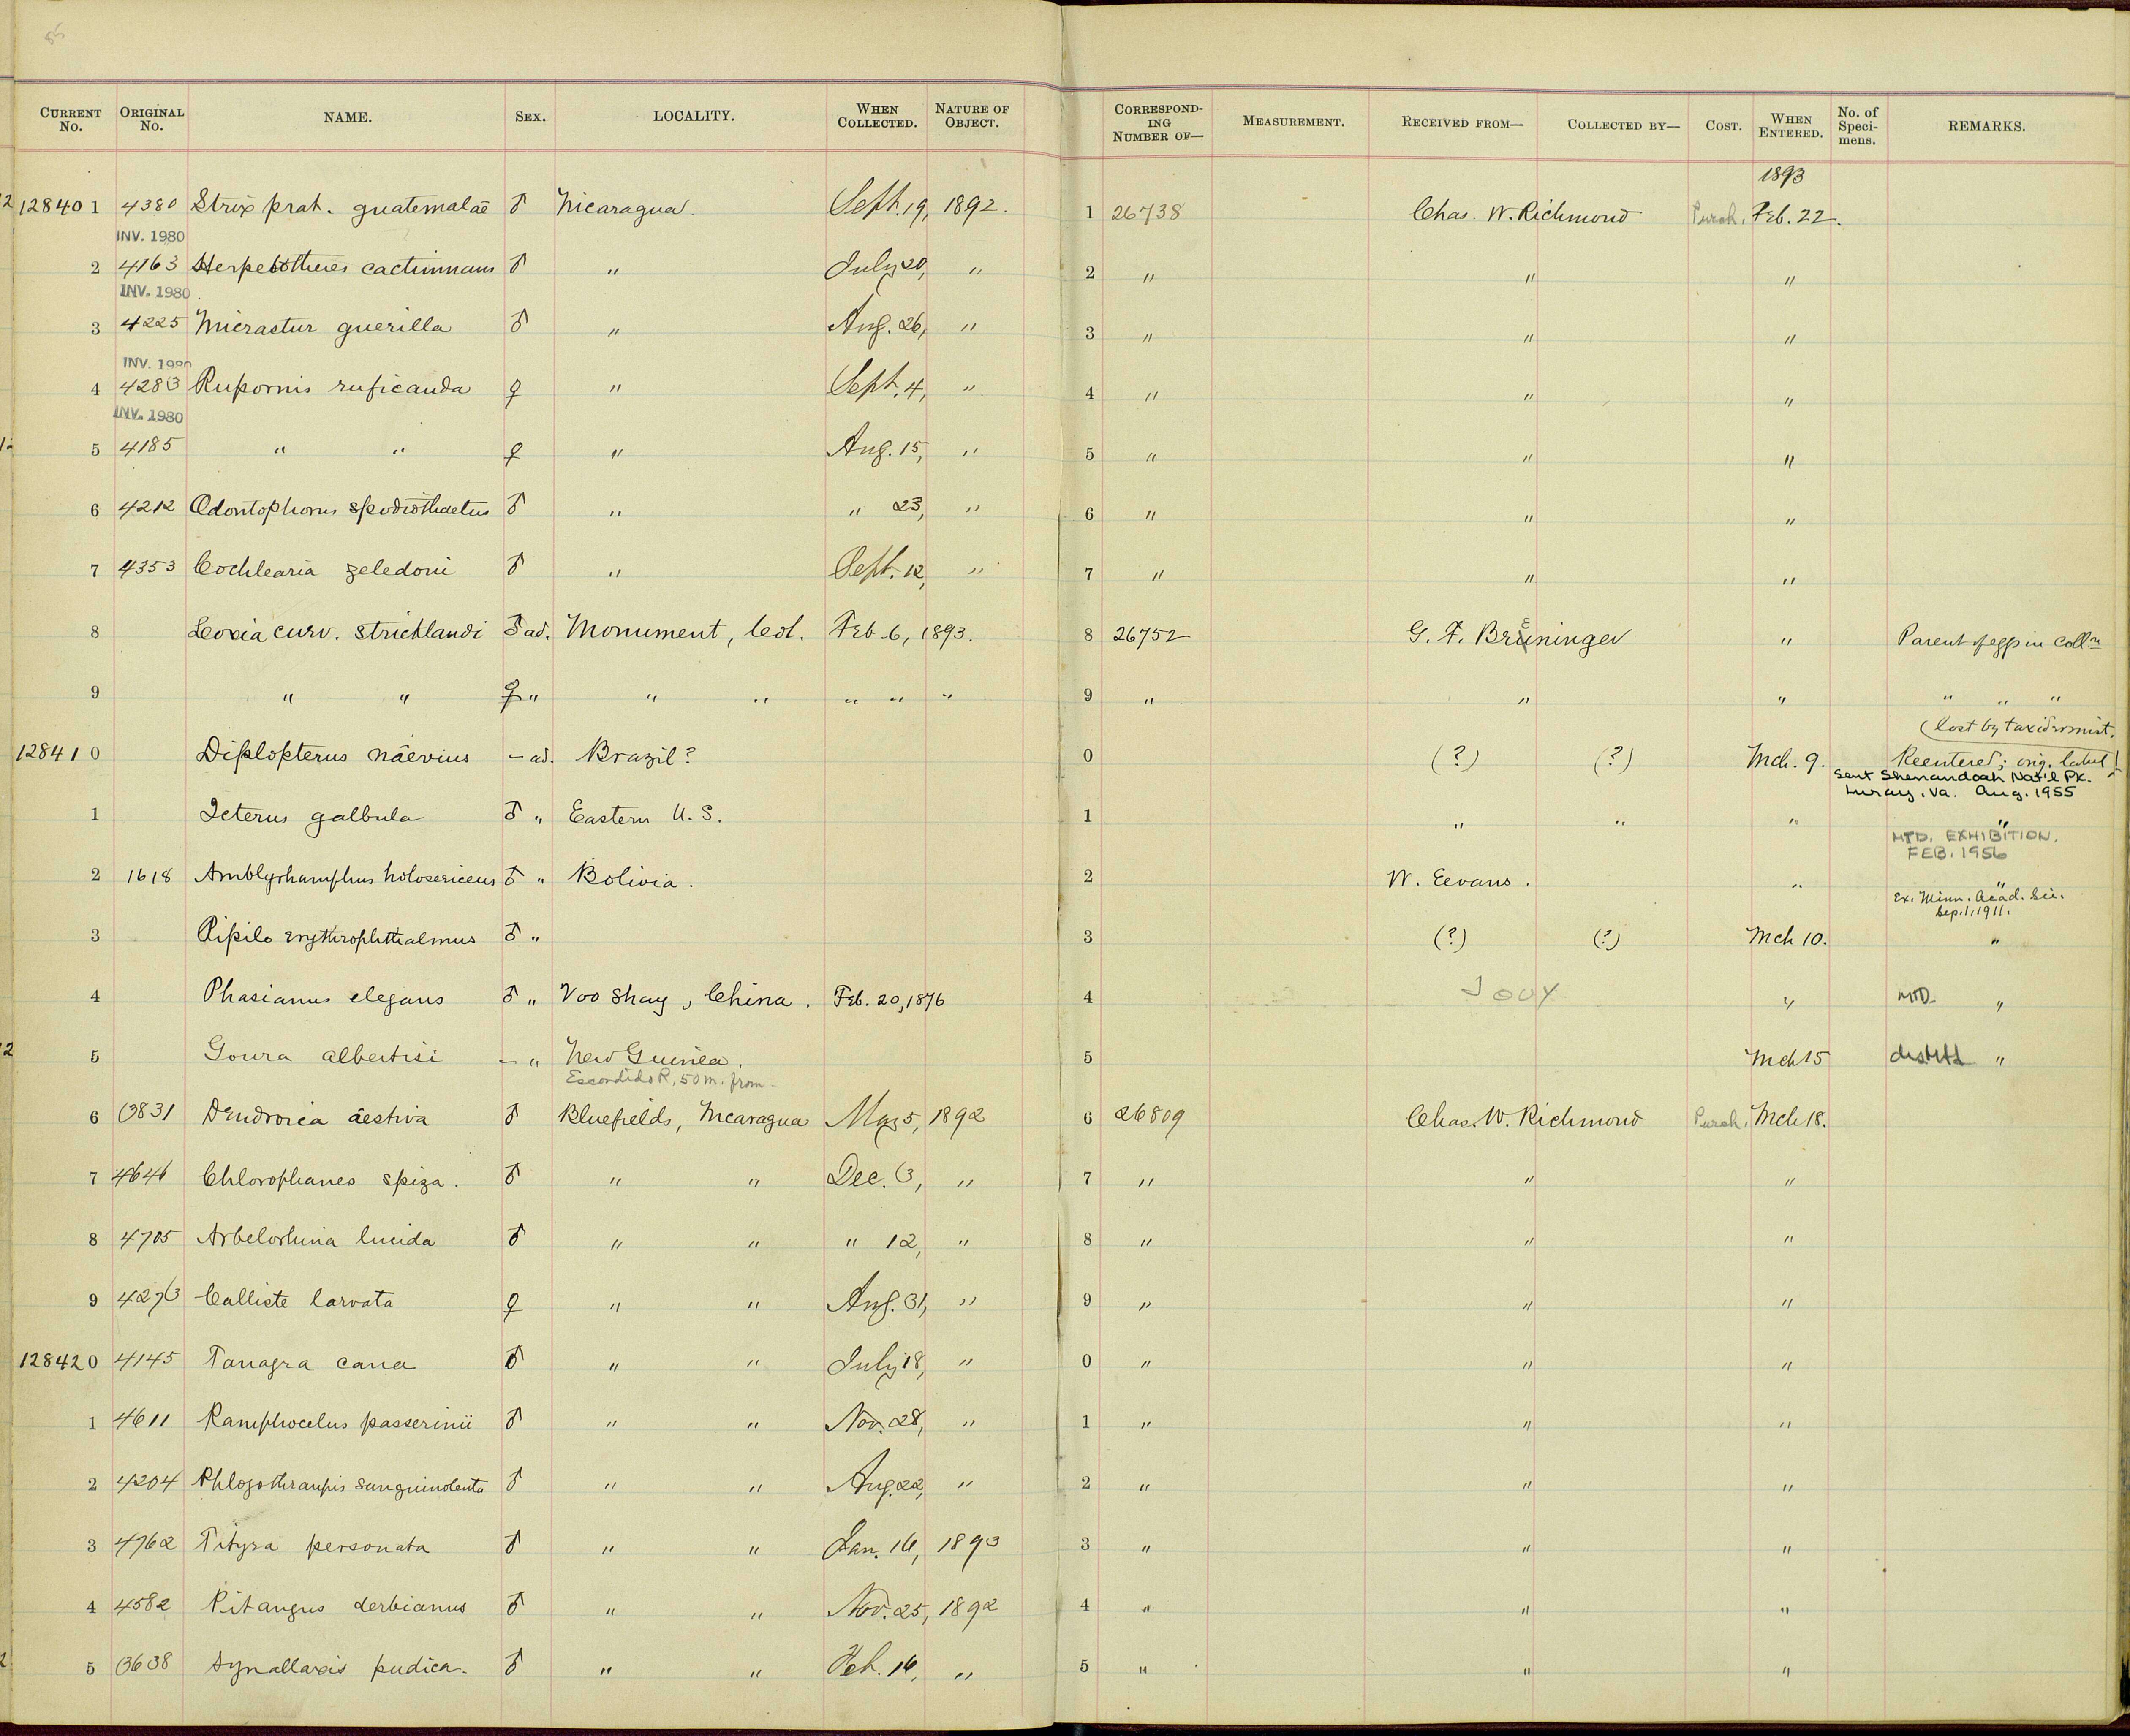 86
CURRENT No. ORIGINAL No. NAME. SEX. LOCALITY. WHEN COLLECTED. NATURE OF OBJECT. CORRESPONDING NUMBER OF— MEASUREMENT. RECEIVED FROM— COLLECTED BY— COST. WHEN ENTERED. No. of Specimens. REMARKS.
1893
128401 4380 Strix prat. guatemalae ♂ Nicaragua. Sept. 19, 1892. 1 26738 Chas. W. Richmond Purch. Feb. 22.
INV. 1980
2 4163 Herpetotheres cachinnans ♂ " July 20, " 2 " " "
INV. 1980
3 4225 Micrastur guerilla ♂ " Aug. 26, " 3 " " "
INV. 1980
4 4283 Rupornis ruficauda ♀ " Sept. 4, " 4 " " "
INV. 1980
5 4185 " " ♀ " Aug. 15, " 5 " " "
6 4212 Odontophorus spodiosthaetus ♂ " " 23, " 6 " " "
7 4353 Cochlearia zeledoni ♂ " Sept. 12, " 7 " " "
8 Loxia curv. stricklandi ♂ ad. Monument, Col. Feb. 6, 1893. 8 26752 G. F. Breninger " Parent of egg in colln
9 " " ♀ " " " " " " 9 " " " " " "
(lost by taxidermist.
128410 Diplopterus naevius – ad. Brazil? 0 (?) (?) Mch. 9. Reentered; orig. label!
Sent Shenandoah Nat'l Pk.
Luray, Va. Aug. 1955
1 Icterus galbula ♂ " Eastern U. S. 1 " " " "
MTD. EXHIBITION.
FEB. 1956
2 1618 Amblyrhamphus holosericeus ♂ " Bolivia. 2 W. Evans. " "
Ex. Minn. Acad. Sci.
Sep. 1, 1911.
3 Pipilo erythrophthalmus ♂ " 3 (?) (?) Mch 10. "
4 Phasianus elegans ♂ " Voo Shay, China. Feb. 20, 1876 4 JOUY " MTD. "
5 Goura albertisi – " New Guinea. 5 Mch 15 "
Escondido R, 50 m. from
6 3831 Dendroica aestiva ♂ Bluefields, Nicaragua May 5, 1892 6 26809 Chas. W. Richmond Purch. Mch 18.
7 4646 Chlorophanes spiza. ♂ " " Dec. 3, " 7 " " "
8 4705 Arbelorhina lucida ♂ " " " 12, " 8 " " "
9 4273 Calliste larvata ♀ " " Aug. 31, " 9 " " "
128420 4145 Tanagra cana ♂ " " July 18, " 0 " " "
1 4611 Ramphocelus passerinii ♂ " " Nov. 28, " 1 " " "
2 4204 Phlogothraupis sanguinolenta ♂ " " Aug. 22, " 2 " " "
3 4762 Tityra personata ♂ " " Jan. 16, 1893 3 " " "
4 4582 Pitangus derbianus ♂ " " Nov. 25, 1892 4 " " "
5 3638 Synallaxis pudica. ♂ " " Feb. 16, " 5 " " "